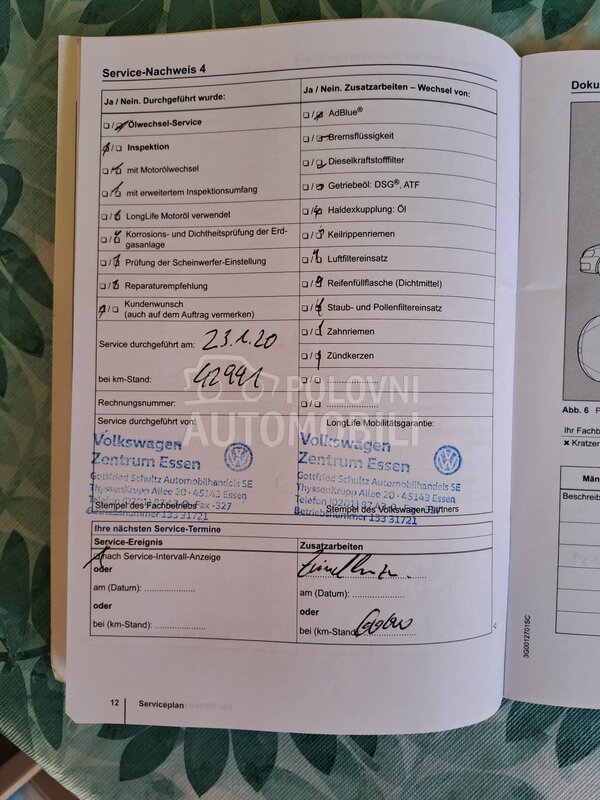 Service-Nachweis 4
Ja / Nein. Durchgeführt wurde:
Ölwechsel-Service
Inspektion
mit Motorölwechsel
mit erweitertem Inspektionsumfang
LongLife Motoröl verwendet
Korrosions- und Dichtheitsprüfung der Erd-
gasanlage
Prüfung der Scheinwerfer-Einstellung
Reparaturempfehlung
Kundenwunsch
(auch auf dem Auftrag vermerken)
Service durchgeführt am: 23.1.20
bei km-Stand: 42991
Rechnungsnummer:
Service durchgeführt von:
Volkswagen
Zentrum Essen
Gottfried Schultz Automobilhandels SE
ThyssenKrupp Allee 20 - 45143 Essen
Stempel des Fachbetriebs
Betriebsnummer 133 31721
Ja / Nein. Zusatzarbeiten – Wechsel von:
AdBlue®
Bremsflüssigkeit
Dieselkraftstofffilter
Getriebeöl: DSG®, ATF
Haldexkupplung: Öl
Keilrippenriemen
Luftfiltereinsatz
Reifenfüllflasche (Dichtmittel)
Staub- und Pollenfiltereinsatz
Zahnriemen
Zündkerzen
LongLife Mobilitätsgarantie:
Volkswagen
Zentrum Essen
Gottfried Schultz Automobilhandels SE
ThyssenKrupp Allee 20 - 45143 Essen
Stempel des Volkswagen Partners
Betriebsnummer 133 31721
POLOVNI
AUTOMOBILI
Ihre nächsten Service-Termine
Service-Ereignis
nach Service-Intervall-Anzeige
oder
am (Datum):
oder
bei (km-Stand):
Zusatzarbeiten
am (Datum):
oder
bei (km-Stand
12 Serviceplan
3G0012701SC
Doku
Abb. 6
Ihr Fachb
Kratzer
Män
Beschreib